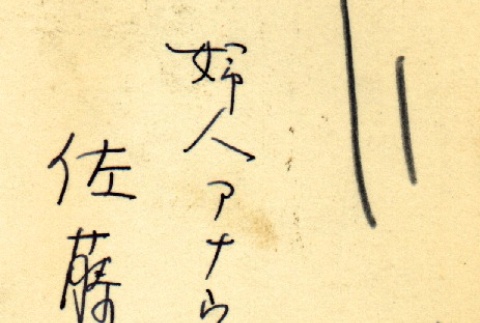 婦人アナウ
佐藤